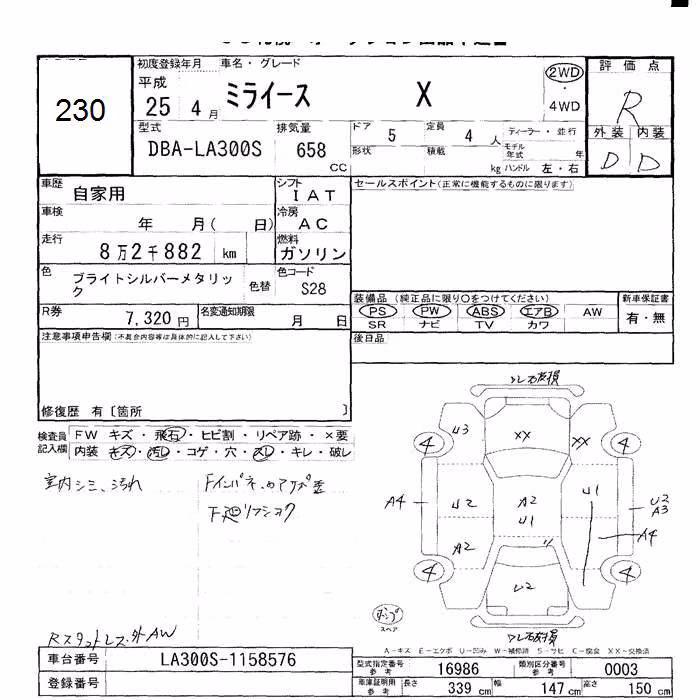 230
初度登録年月 車名・グレード 評価点
平成 25 4月 ミライース X 2WD ・ 4WD R
型式 排気量 ドア 5 定員 4人 ディーラー・並行 外装 内装
DBA-LA300S 658 CC 形状 積載 kg モデル年式 年 ハンドル 左・右 D D
車歴 自家用 シフト IAT セールスポイント(正常に機能するものに限ります)
車検 年 月( 日) 冷房 AC
走行 8万2千882 km 燃料 ガソリン
色 ブライトシルバーメタリック 色替 色コード S28
装備品(純正品に限り○をつけてください) 新車保証書
R券 7,320円 名変通知期限 月 日 PS PW ABS エアB AW 有・無
SR ナビ TV カワ
注意事項申告欄(不具合内容等は具体的に記入して下さい) 後日品
修復歴 有[箇所 ]
検査員記入欄 FW キズ・飛石・ヒビ割・リペア跡・×要
内装 キズ・汚れ・コゲ・穴・スレ・キレ・破レ
室内シミ、汚れ
下廻リ
4 U3 XX XX 4
A4 U2 A2 U1 U1 U2 A3
A2 A4
4 U2 4
スペア
A-キズ E-エクボ U-凹み W-補修跡 S-サビ C-腐食 XX-交換済
車台番号 LA300S-1158576 型式指定番号 参考 16986 類別区分番号 参考 0003
登録番号 車庫証明用 参考 長さ 339 cm 幅 147 cm 高さ 150 cm